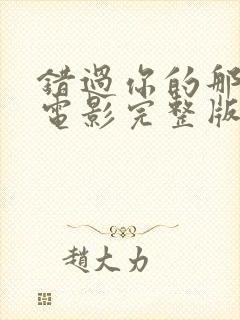 錯過你的那
電影完整版
趙大力